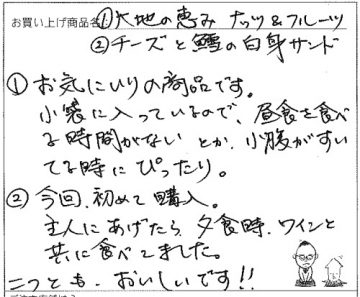 お買い上げ商品名:①大地の恵み ナッツ&フルーツ
②チーズと鱈の白身サンド
①お気にいりの商品です。
小袋に入っているので、昼食を食べ
る時間がない とか、小腹がすい
てる時にぴったり。
②今回、初めて購入。
主人にあげたら 夕食時、ワインと
共に食べてました。
二つとも、おいしいです!!